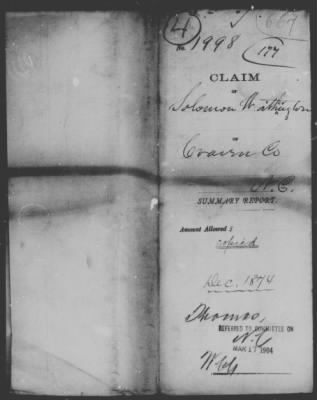 4
No. 1998
177
CLAIM
OF
Solomon Witherington
OF
Craven Co
N.C.
SUMMARY REPORT.
Amount Allowed $
copied
Dec. 1874
Thomas,
REFERRED TO COMMITTEE ON
N.C.
MAR 17 1904